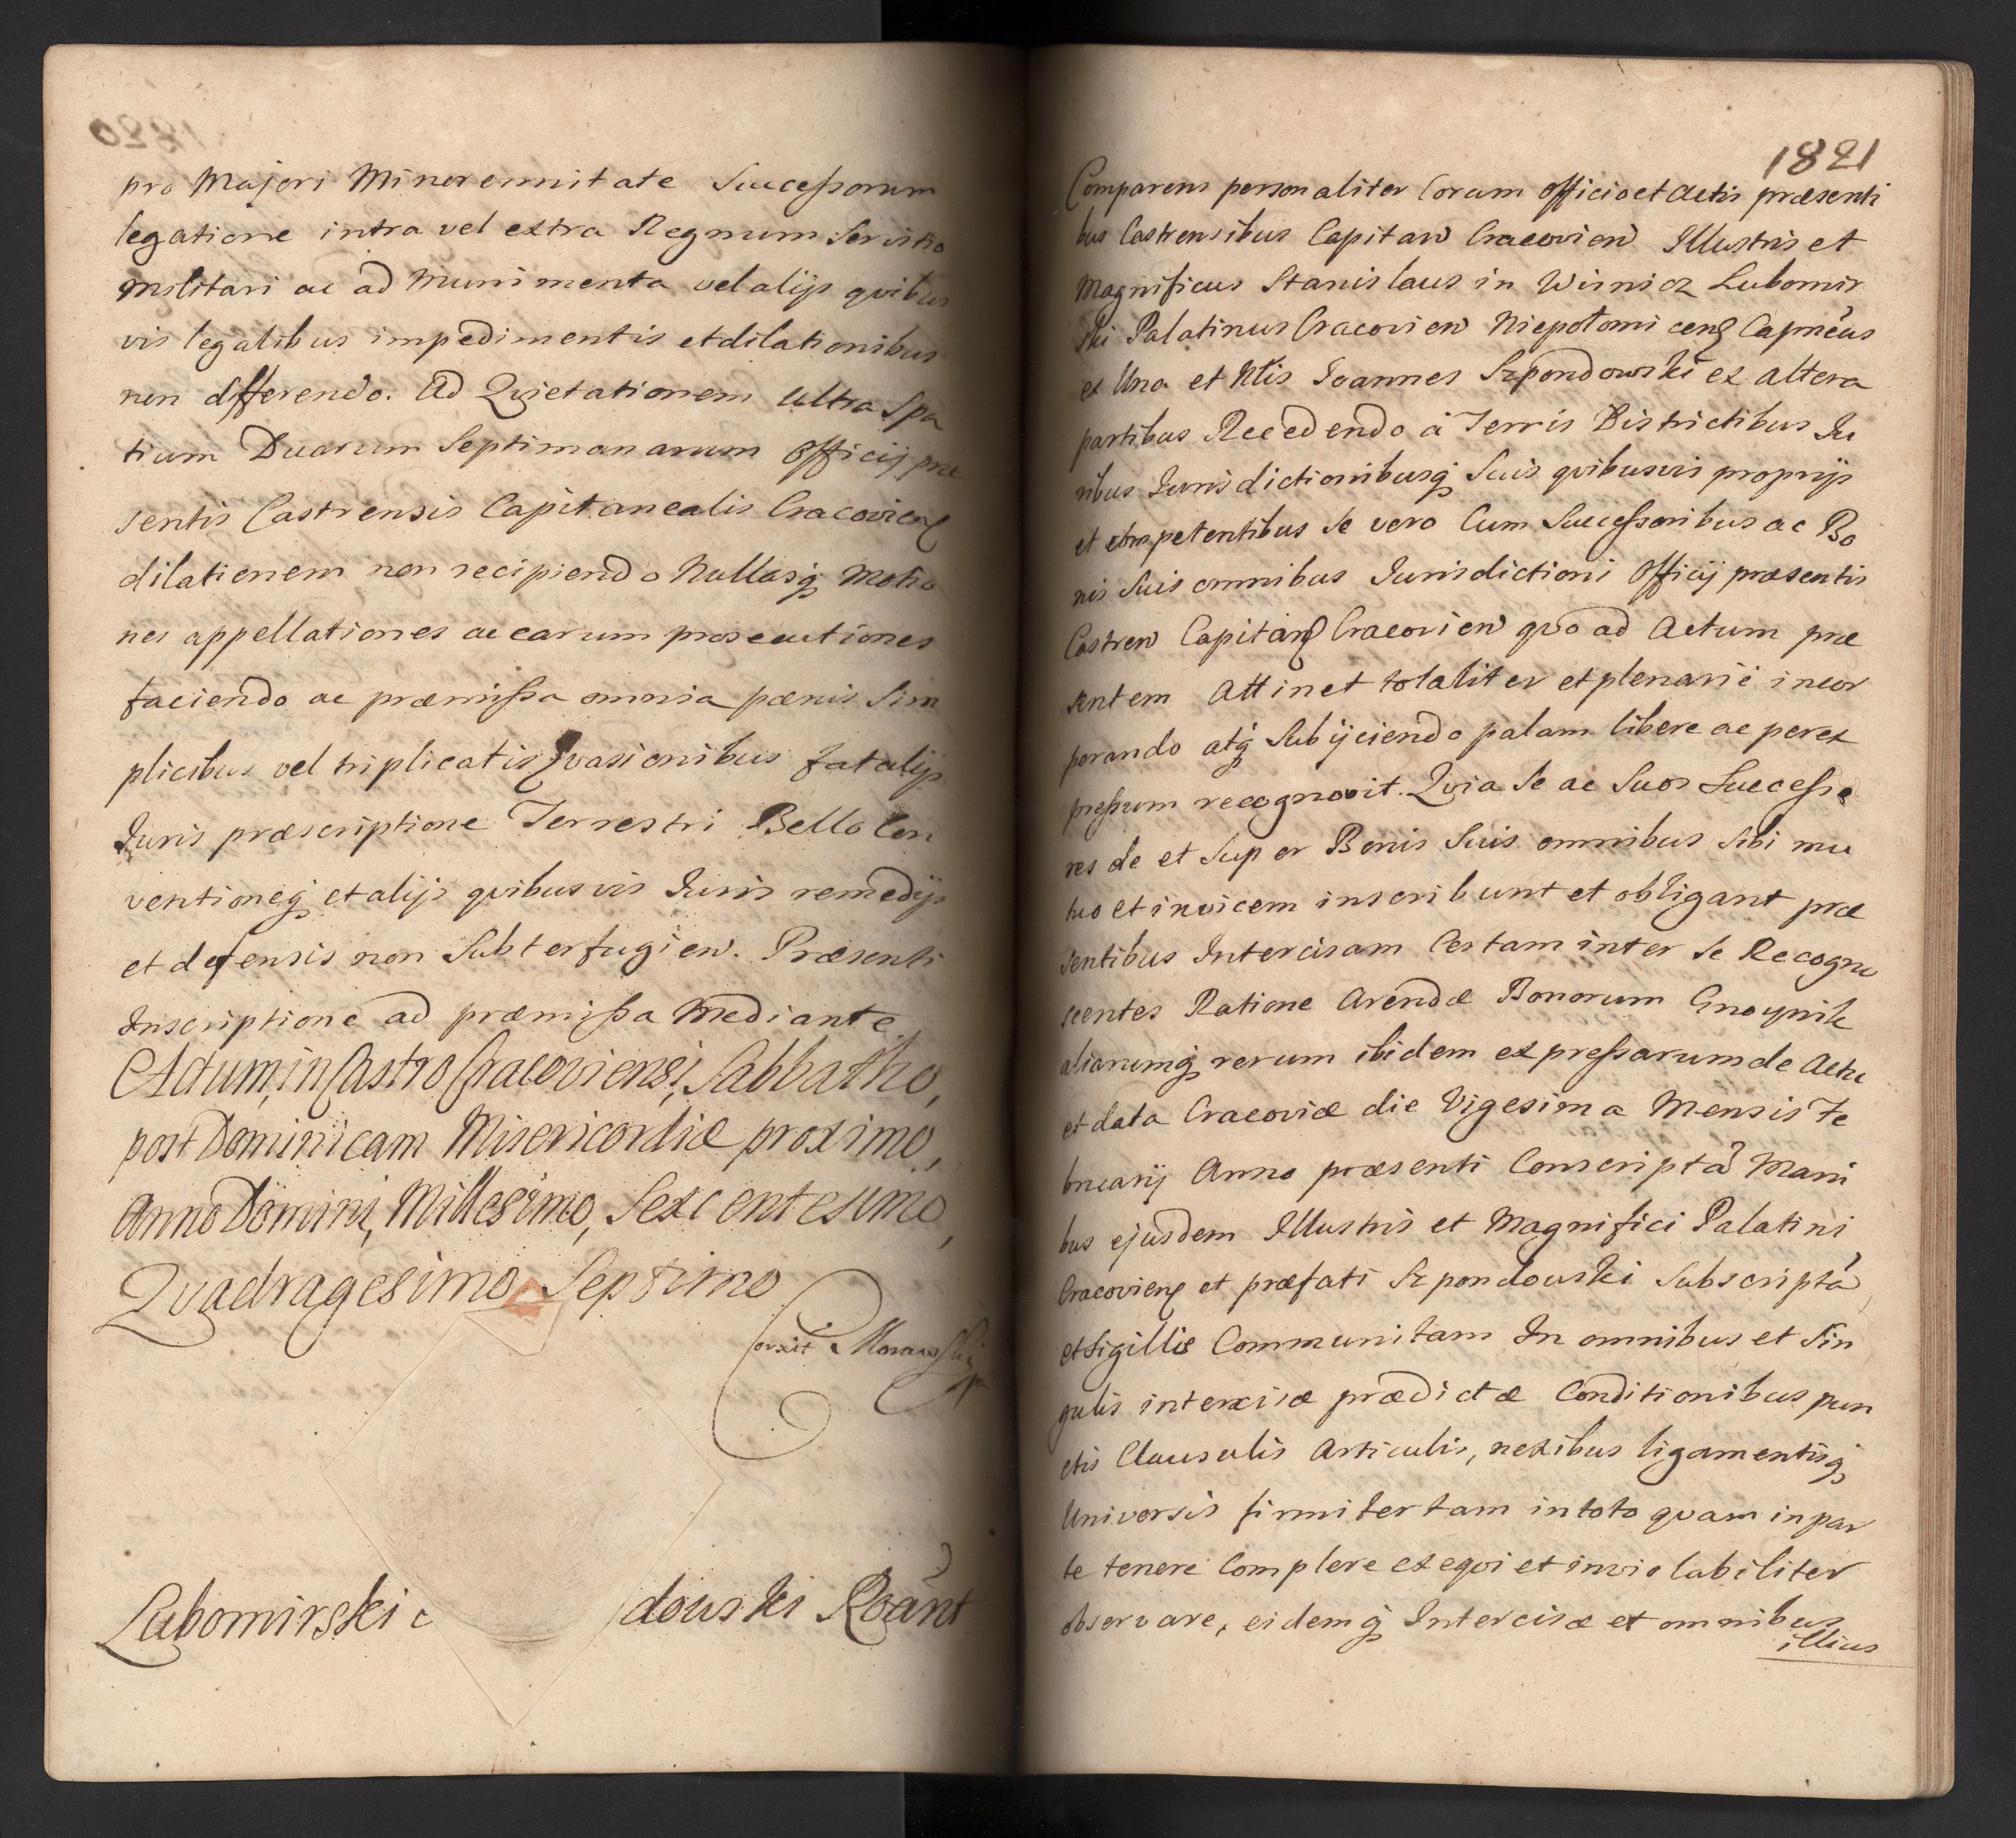 1820
pro Majori Minorennitate Successorum
legatione intra vel extra Regnum Servitio
militari ac ad Munimenta vel alijs qvibus
vis legalibus impedimentis et dilationibus
non differendo. Ad Qvietationem ultra Spa
tium Duarum Septimanarum Officij præ
sentis Castrensis Capitanealis Cracovien
dilationem non recipiendo Nullasq Motio
nes appellationes ac earum prosecutiones
faciendo ac præmissa omnia pænis Sim
plicibus vel triplicatis Evasionibus fatalijs
Juris præscriptione Terrestri Bello Con
ventioneq et alijs qvibusvis Juris remedijs
et defensis non Subterfugien. Præsenti
Inscriptione ad præmissa Mediante.
Actum, in Castro Cracoviensi, Sabbatho,
post Dominicam Misericordiæ proximo,
Anno Domini, Millesimo, Sexcentesimo,
Qvadragesimo Septimo
Corxit Morawski
Lubomirski
douski Roant
1821
Comparens personaliter Coram Officio et Actis præsenti
bus Castrensibus Capitan Cracovien Illustris et
Magnificus Stanislaus in Wisnicz Lubomir
ski Palatinus Cracovien Niepołomicen Capneus
ex Una et Nlis Joannes Szpondowski ex altera
partibus Recedendo á Terris Districtibus Ju
ribus Jurisdictionibusq Suis qvibusvis proprijs
et competentibus Se vero Cum Successoribus ac Bo
nis Suis omnibus Jurisdictioni Officij præsentis
Castren Capitan Cracovien qvo ad Actum præ
sentem Attinet totaliter et plenarie incor
porando atq Subijciendo palam libere ac perex
pressum recognovit. Qvia Se ac Suos Successo
res de et Super Bonis Suis omnibus Sibi mu
tuo et invicem inscribunt et obligant præ
sentibus Intercisam Certam inter Se Recogno
scentes Ratione Arendæ Bonorum Gnoynik
aliarumq rerum ibidem expressarum de Actu
et data Cracoviæ die Vigesima Mensis Fe
bruarij Anno præsenti Conscripta Mani
bus ejusdem Illustris et Magnifici Palatini
Cracovien et præfati Szpondouski Subscripta
et Sigillis Communitam In omnibus et Sin
gulis intercisæ prædictæ Conditionibus pun
ctis Clausulis Articulis, nexibus ligamentisq
Universis firmiter tam in toto qvam in par
te tenere Complere exeqvi et inviolabiliter
observare, eidemq Intercisæ et omnibus
illius